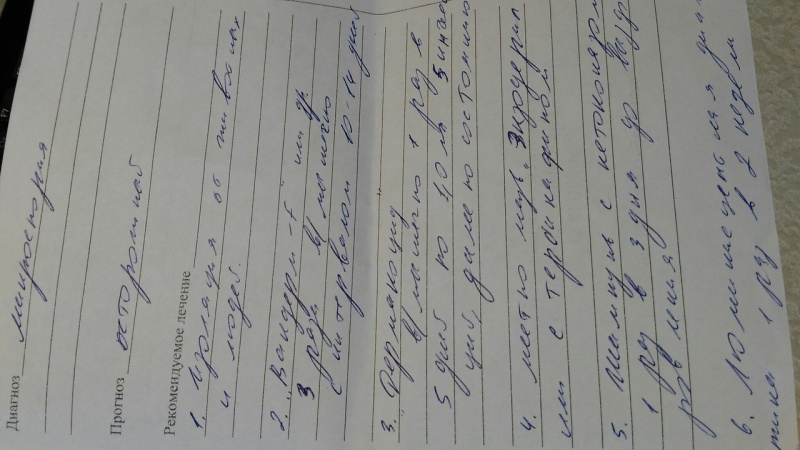 Диагноз микроспория
Прогноз осторожный
Рекомендуемое лечение
1. Изоляция от животных
и людей.
2. „Вакдерм-F" или др.
3 раза в/мышечно
с интервалом 10-14 дней
3.
в/мышечно 1 раз в
5 дней по 1,0 мл 5 инъек
ций, далее по состоянию
4. местно мазь „Экзодерил"
или с тербинафином
5. Шампунь с кетоконазолом
1 раз в 3 дня до
6. Люминесцентная диагнос
тика 1 раз в 2 недели